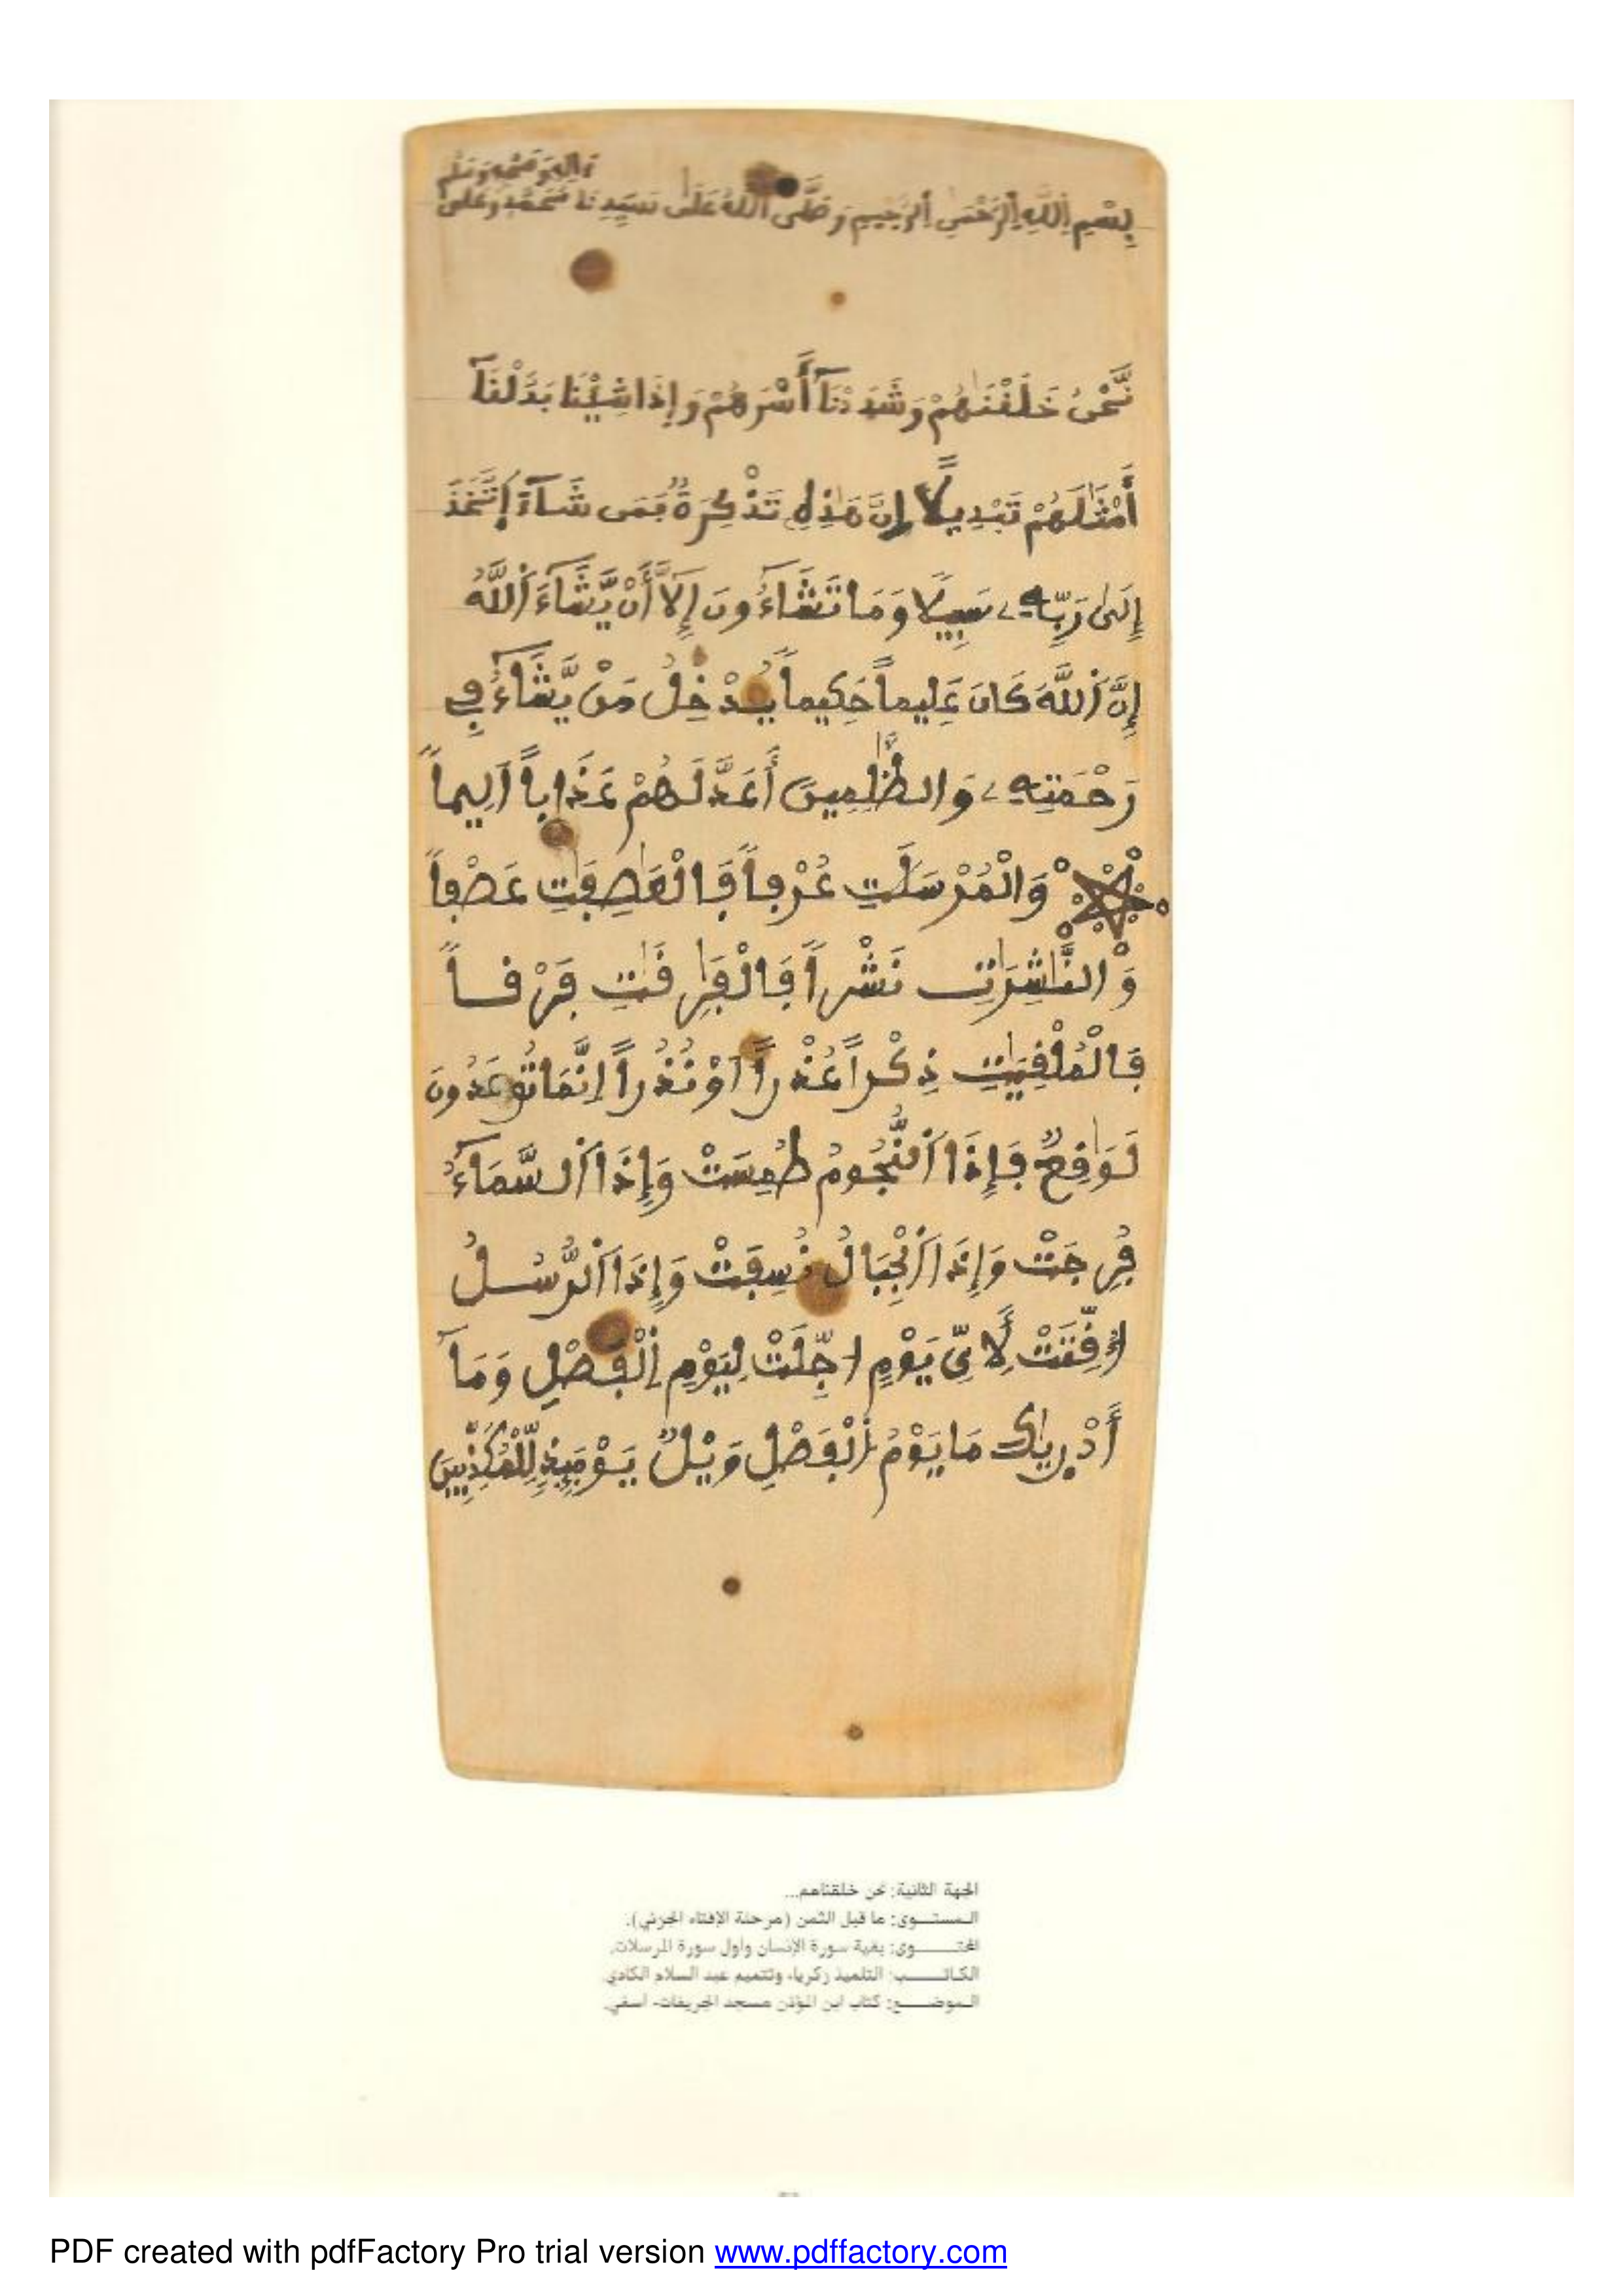 وَءالِهِ وَصَحْبِهِ وَسَلَّمَ
بِسْمِ اِللَّهِ اِلرَّحْمٰنِ اِلرَّحِيمِ وَصَلَّى اَللَّهُ عَلَىٰ سَيِّدِنَا مُحَمَّدٍ وَعَلَىٰ
نَّحْنُ خَلَفْنَٰهُمْ وَشَدَدْنَآ أَسْرَهُمْ وَإِذَا شِيْنَا بَدَّلْنَآ
أَمْثَٰلَهُمْ تَبْدِيلًا إِنَّ هَٰذِهِ تَذْكِرَةٌ فَمَن شَآءَ اَتَّخَذَ
إِلَىٰ رَبِّهِۦ سَبِيلًا وَمَا تَشَآءُونَ إِلَّآ أَنْ يَّشَآءَ اَللَّهُ
إِنَّ اَللَّهَ كَانَ عَلِيماً حَكِيماً يُدْخِلُ مَنْ يَّشَآءُ فِے
رَحْمَتِهِۦ وَالظَّٰلِمِينَ أَعَدَّ لَهُمْ عَذَاباً اَلِيماً
وَالْمُرْسَلَٰتِ عُرْفاً فَالْعَٰصِفَٰتِ عَصْفاً
وَالنَّٰشِرَٰتِ نَشْراً فَالْفَٰرِقَٰتِ فَرْقاً
فَالْمُلْقِيَٰتِ ذِكْراً عُذْراً اَوْ نُذُراً اِنَّمَا تُوعَدُونَ
لَوَٰقِعٌ فَإِذَا اَلنُّجُومُ طُمِسَتْ وَإِذَا اَلسَّمَآءُ
فُرِجَتْ وَإِذَا اَلْجِبَالُ نُسِفَتْ وَإِذَا اَلرُّسُلُ
اُقِّتَتْ لِأَيِّ يَوْمٍ اُجِّلَتْ لِيَوْمِ اِلْفَصْلِ وَمَآ
أَدْرَيٰكَ مَا يَوْمُ اُلْفَصْلِ وَيْلٌ يَوْمَئِذٍ لِّلْمُكَذِّبِينَ
الجهة الثانية: نحن خلقناهم...
المستــوى: ما قبل الثمن (مرحلة الإفتاء الجزئي).
المحتــوى: بقية سورة الإنسان وأول سورة المرسلات.
الكاتــب: التلميذ زكرياء وتتميم عبد السلام الكادي.
الموضــع: كتاب ابن المؤذن مسجد الجريفات- أسفي.
PDF created with pdfFactory Pro trial version www.pdffactory.com